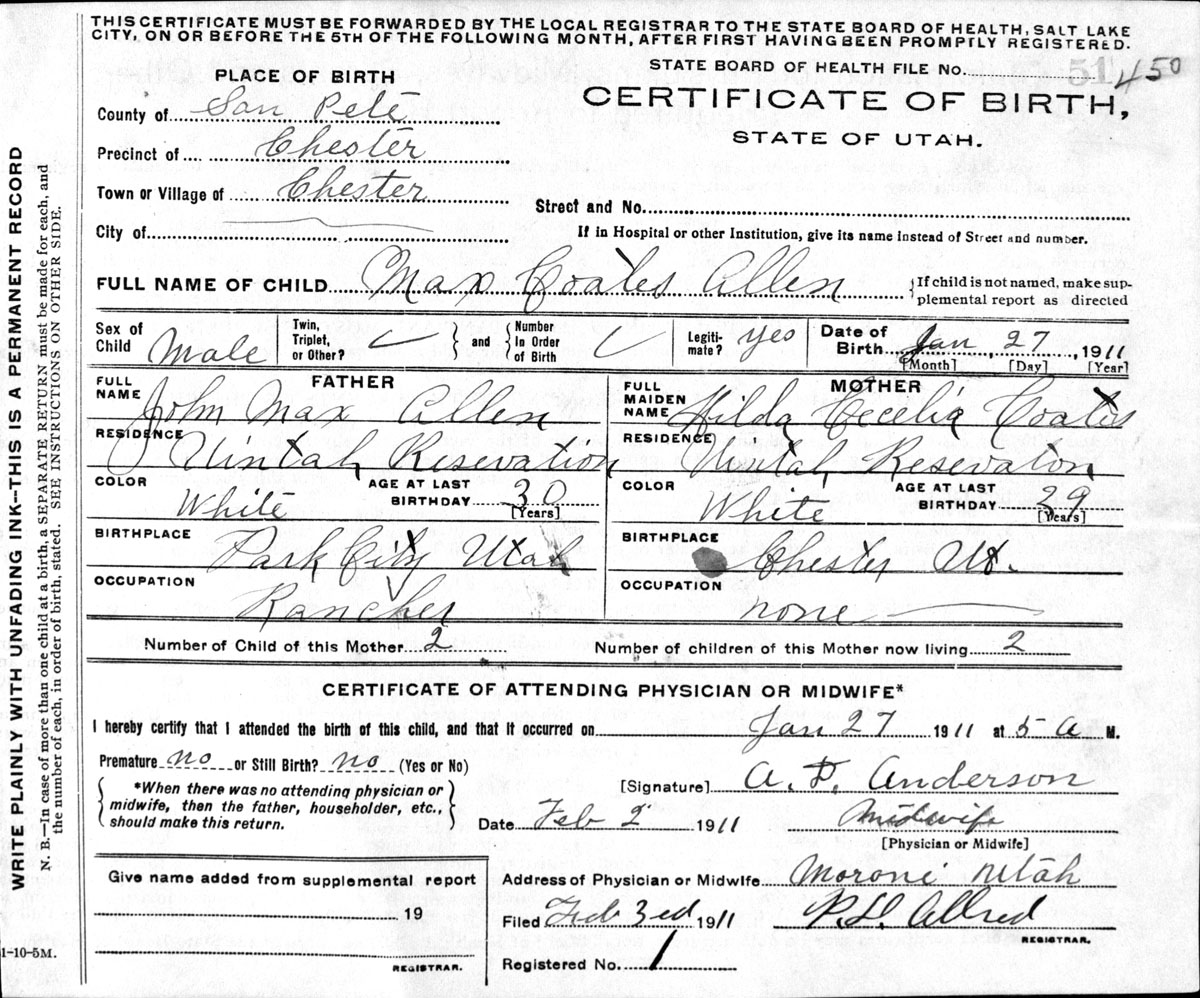 THIS CERTIFICATE MUST BE FORWARDED BY THE LOCAL REGISTRAR TO THE STATE BOARD OF HEALTH, SALT LAKE
CITY, ON OR BEFORE THE 5TH OF THE FOLLOWING MONTH, AFTER FIRST HAVING BEEN PROMPTLY REGISTERED.
STATE BOARD OF HEALTH FILE No. 51 450
PLACE OF BIRTH
CERTIFICATE OF BIRTH,
STATE OF UTAH.
County of San Pete
Precinct of Chester
Town or Village of Chester
Street and No.
City of
If in Hospital or other Institution, give its name instead of Street and number.
FULL NAME OF CHILD Max Coates Allen {If child is not named, make sup-
plemental report as directed
Sex of Child Male Twin, Triplet, or Other? } and { Number In Order of Birth Legiti-mate? Yes Date of Birth Jan, 27, 1911
[Month] [Day] [Year]
FATHER MOTHER
FULL NAME John Max Allen FULL MAIDEN NAME Hilda Cecelia Coates
RESIDENCE Uintah, Resevation RESIDENCE Uintah, Resevaton
COLOR White AGE AT LAST BIRTHDAY 30 [Years] COLOR White AGE AT LAST BIRTHDAY 29 [Years]
BIRTHPLACE Park City Utah BIRTHPLACE Chester Ut.
OCCUPATION Rancher OCCUPATION none
Number of Child of this Mother 2 Number of children of this Mother now living 2
CERTIFICATE OF ATTENDING PHYSICIAN OR MIDWIFE*
I hereby certify that I attended the birth of this child, and that it occurred on Jan 27 1911 at 5 a M.
Premature no or Still Birth? no (Yes or No)
[Signature] A. P. Anderson
{ *When there was no attending physician or
midwife, then the father, householder, etc.,
should make this return. }
Date Feb 2 1911 Midwife
[Physician or Midwife]
Give name added from supplemental report
19
REGISTRAR.
Address of Physician or Midwife Moroni Utah
Filed Feb 3ed 1911 P.L. Allred
REGISTRAR.
Registered No. 1
1-10-5M.
WRITE PLAINLY WITH UNFADING INK--THIS IS A PERMANENT RECORD
N. B.—In case of more than one child at a birth, a SEPARATE RETURN must be made for each, and
the number of each, in order of birth, stated. SEE INSTRUCTIONS ON OTHER SIDE.